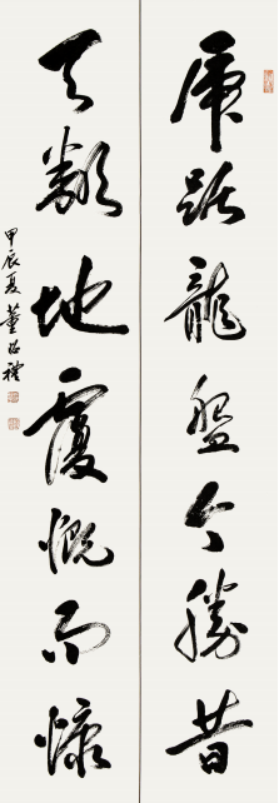 虎踞龍盤今勝昔
天翻地覆慨而慷
甲辰夏 董